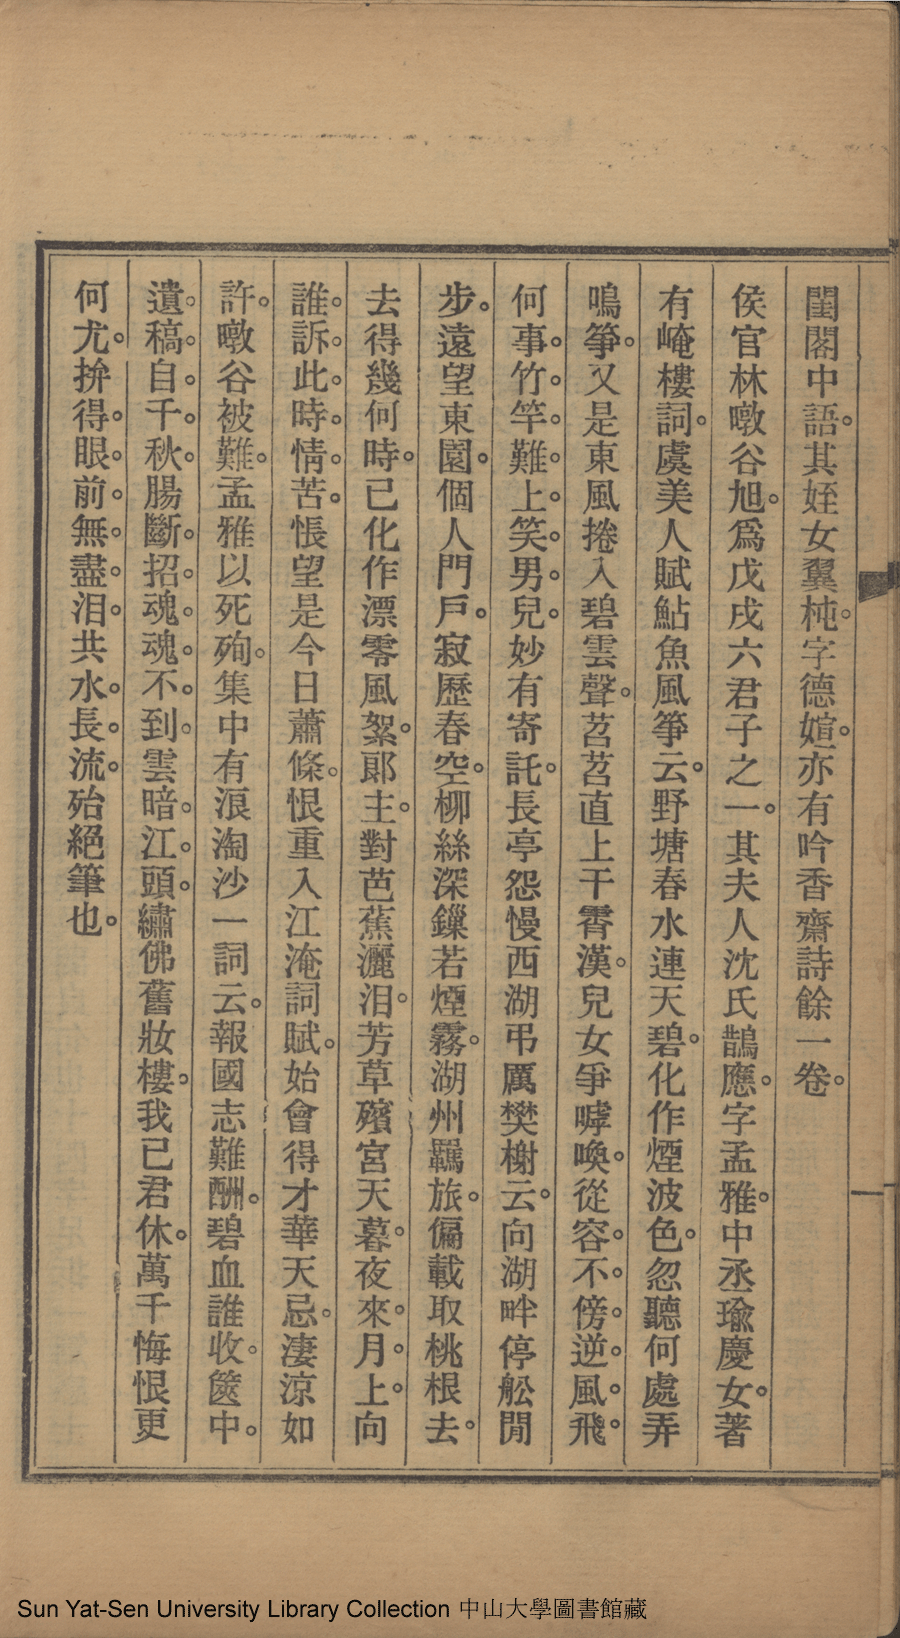 閨閣中語。其姪女翼杶。字德媗。亦有吟香齋詩餘一卷。
侯官林暾谷旭。爲戊戌六君子之一。其夫人沈氏鵲應。字孟雅。中丞瑜慶女。著
有崦樓詞。虞美人賦鮎魚風箏云。野塘春水連天碧。化作煙波色。忽聽何處弄
鳴箏。又是東風捲入碧雲聲。苕苕直上干霄漢。兒女爭嘑喚。從容不傍逆風飛。
何事竹竿難上笑男兒。妙有寄託。長亭怨慢西湖弔厲樊榭云。向湖畔停舩閒
步。遠望東園。個人門戶。寂歷春空。柳絲深鏁若煙霧。湖州羈旅。偏載取桃根去。
去得幾何時。已化作漂零風絮。郎主。對芭蕉灑泪。芳草殯宮天暮。夜來月上。向
誰訴此時情苦。悵望是今日蕭條。恨重入江淹詞賦。始會得才華天忌。淒涼如
許。暾谷被難。孟雅以死殉。集中有浪淘沙一詞云。報國志難酬。碧血誰收。篋中。
遺稿自千秋。腸斷招魂魂不到。雲暗江頭。繡佛舊妝樓。我已君休。萬千悔恨更
何尤。拚得眼前無盡泪。共水長流。殆絕筆也。
Sun Yat-Sen University Library Collection 中山大學圖書館藏